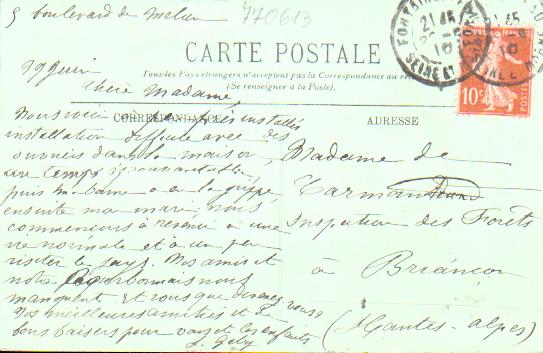 5 boulevard de Melun
770613
FONTAINEBLEAU
21 45
10
SEINE ET MARNE
CARTE POSTALE
Tous les Pays étrangers n'acceptent pas la Correspondance au
(Se renseigner à la Poste).
CORRESPONDANCE
ADRESSE
10c
POSTES
Juin
Chère Madame
Nous voici à peu près installés
installation difficile avec des
ouvriers dans la maison,
un temps épouvantable,
puis a eu la grippe,
ensuite mon mari; nous
commençons à revenir à une
vie normale et à un peu
visiter le pays. Nos amis et
notre nous
manquent. Et vous que devenez vous?
Nos meilleures amitiés et de
bons baisers pour vous et les enfants
Madame de
Inspection des Forêts
à Briançon
(Hautes-Alpes)